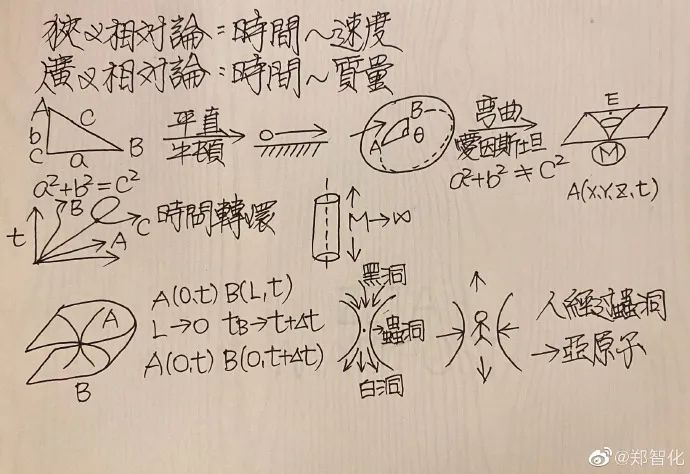 狹义相对論:時間～速度
廣义相对論:時間～質量
A
b
c
C
a
B
平直
牛頓
A
B
θ
弯曲
愛因斯坦
E
M
a²+b²=c²
a²+b²≠c²
A(X,Y,Z,t)
t
B
C
A
時間轉環
M→∞
A
B
A(0,t) B(L,t)
L→0 tB→t+Δt
A(0,t) B(0,t+Δt)
黑洞
蟲洞
白洞
人經过蟲洞
→亞原子
@郑智化